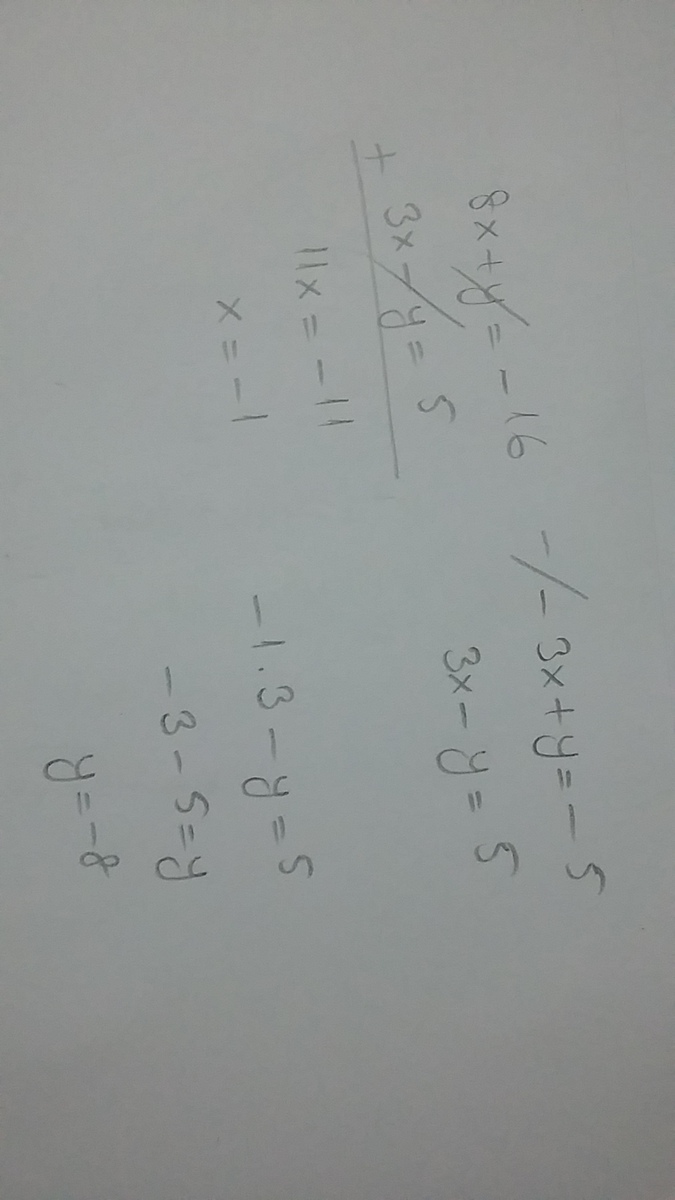 8x+y=-16
+ 3x-y=5
11x=-11
x=-1
-/-3x+y=-5
3x-y=5
-1.3-y=5
-3-5=y
y=-8